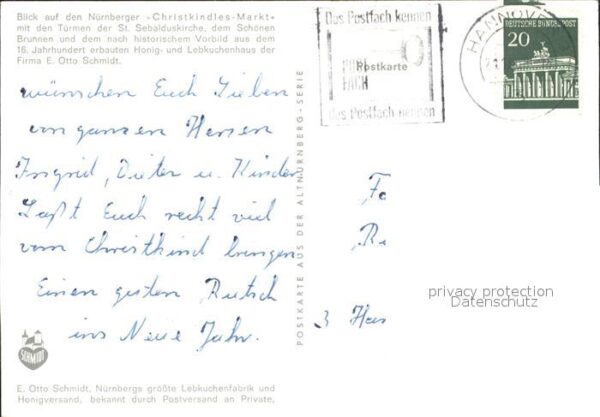 Blick auf den Nürnberger »Christkindles-Markt«
mit den Türmen der St. Sebalduskirche, dem Schönen
Brunnen und dem nach historischem Vorbild aus dem
16. Jahrhundert erbauten Honig- und Lebkuchenhaus der
Firma E. Otto Schmidt.
wünschen Euch Lieben
von ganzen Herzen
Ingrid, Dieter u. Kinder
Laßt Euch recht viel
vom Christkind bringen
Einen guten Rutsch
ins Neue Jahr.
SCHMIDT
E. Otto Schmidt, Nürnbergs größte Lebkuchenfabrik und
Honigversand, bekannt durch Postversand an Private,
POSTKARTE AUS DER ALTNÜRNBERG-SERIE
Das Postfach kennen
Postkarte
FACH
das Postfach nennen
HANNOVE
DEUTSCHE BUNDESPOST
20
Fa
3 Han
privacy protection
Datenschutz